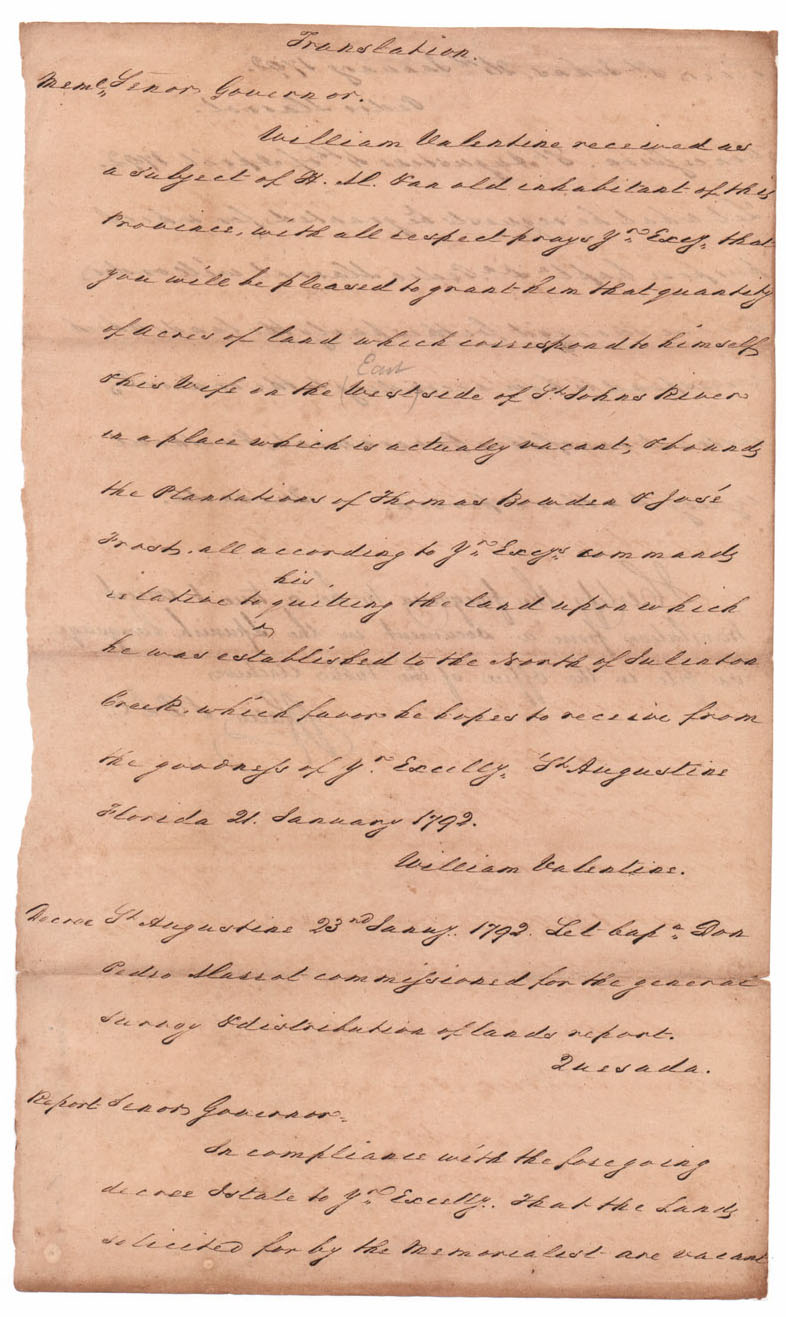 Translation.
Meml. Senor Governor.
William Valentine received as
a subject of H. M. & an old inhabitant of this
Province, with all respect prays Yr. Excy. that
you will be pleased to grant him that quantity
of acres of land which correspond to himself
& his Wife on the (West) side of St. Johns River
East
in a place which is actually vacant, & bounds
the Plantations of Thomas Bowden & José
Frost, all according to Yr. Excys. commands
relative to his quitting the land upon which
he was established to the North of
Creek, which favor he hopes to receive from
the goodness of Yr. Excelly. St. Augustine
Florida 21. January 1792.
William Valentine.
Decree St. Augustine 23rd Janry. 1792. Let Capn. Don
Pedro Marrot commissioned for the general
survey & distribution of lands report.
Quesada.
Report Senor Governor.
In compliance with the foregoing
decree I state to Yr. Excelly. That the Lands
solicited for by the Memorialist are vacant